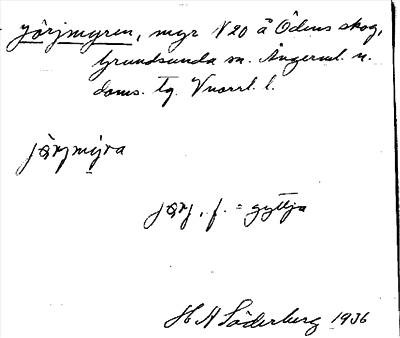 Yörjmyren, myr N20 å Ödens skog,
Grundsunda sn. Ångerml. n.
doms. tg. Vnorrl. l.
jörjmỳra
jörj, f. = gyttja
H A Söderberg 1936